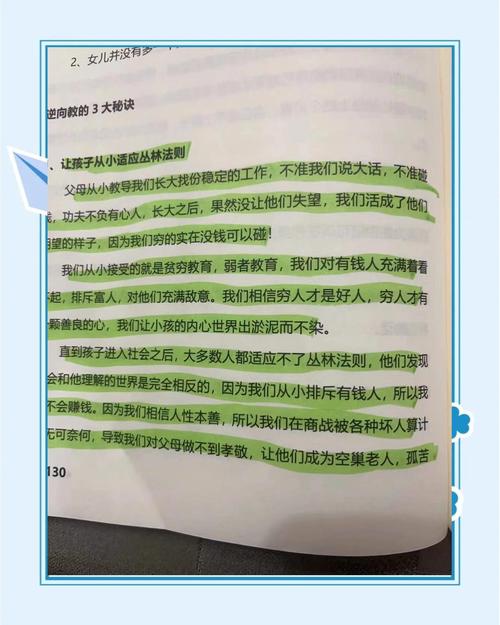 2、女儿并没有多一个
逆向教的 3 大秘诀
、让孩子从小适应丛林法则
父母从小教导我们长大找份稳定的工作，不准我们说大话，不准碰
钱，功夫不负有心人，长大之后，果然没让他们失望，我们活成了他们
期望的样子，因为我们穷的实在没钱可以碰！
我们从小接受的就是贫穷教育，弱者教育，我们对有钱人充满着看
不起，排斥富人，对他们充满敌意。我们相信穷人才是好人，穷人才有
一颗善良的心，我们让小孩的内心世界出淤泥而不染。
直到孩子进入社会之后，大多数人都适应不了丛林法则，他们发现
会和他理解的世界是完全相反的，因为我们从小排斥有钱人，所以我
不会赚钱。因为我们相信人性本善，所以我们在商战被各种坏人算计
无可奈何，导致我们对父母做不到孝敬，让他们成为空巢老人，孤苦
130